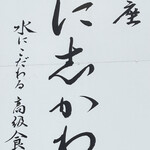 座
に志かわ
水にこだわる 高級食